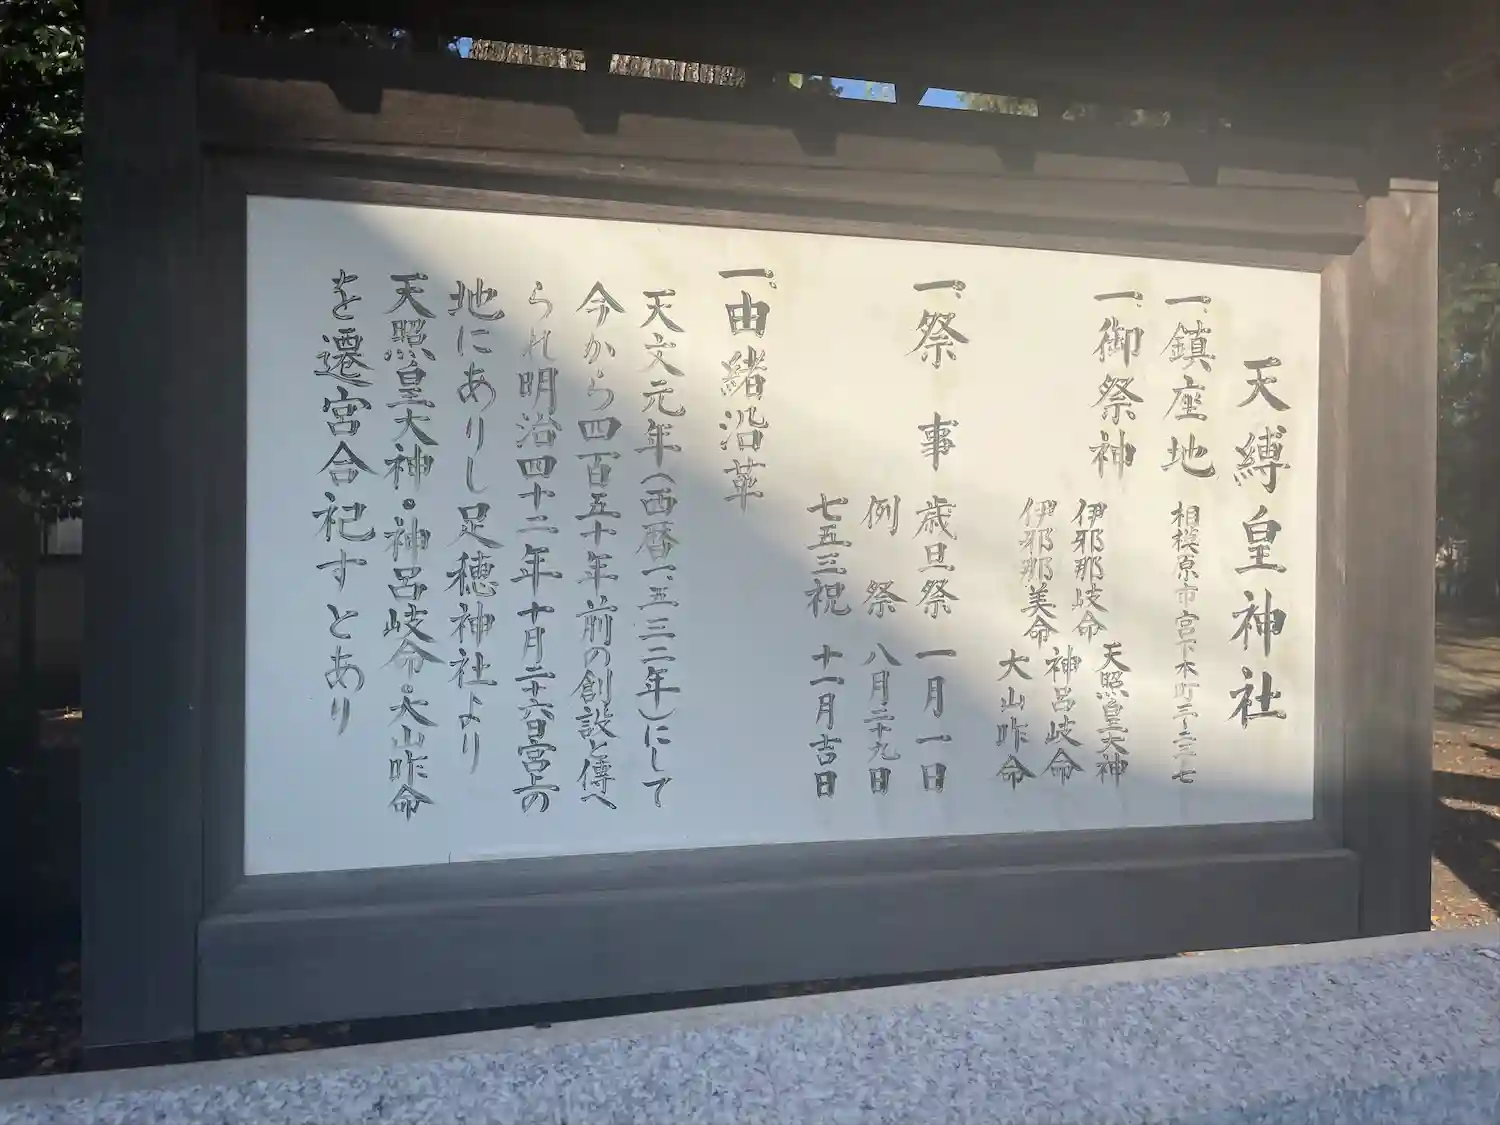 天縛皇神社
一、鎮座地 相模原市宮下本町三ー二三ー七
一、御祭神 伊邪那岐命 天照皇大神
神呂岐命
伊邪那美命 大山咋命
一、祭事 歳旦祭 一月一日
例祭 八月二十九日
七五三祝 十一月吉日
一、由緒沿革
天文元年(西暦一、五三二年)にして
今から四百五十年前の創設と傳へ
られ明治四十二年十月二十六日宮上の
地にありし足穂神社より
天照皇大神・神呂岐命・大山咋命
を遷宮合祀すとあり